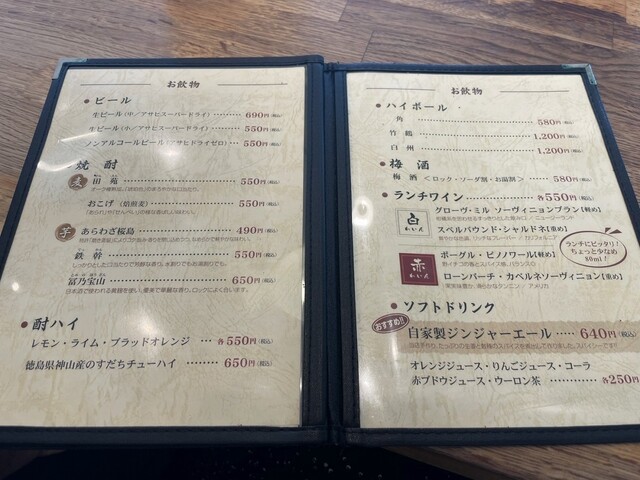 お飲物
●ビール
生ビール(中／アサヒスーパードライ) ……… 690円(税込)
生ビール(小／アサヒスーパードライ) ……… 550円(税込)
ノンアルコールビール(アサヒドライゼロ) … 550円(税込)
焼 酎
麦 田苑 ……… 550円(税込)
おこげ (焙煎麦) ……… 550円(税込)
芋 あらわざ桜島 ……… 490円(税込)
鉄 幹 ……… 550円(税込)
冨乃宝山 ……… 650円(税込)
日本酒で使われる黄麹を使い、優美で華麗な香り。ロックによく合います。
●酎ハイ
レモン・ライム・ブラッドオレンジ … 各550円(税込)
徳島県神山産のすだちチューハイ ……… 650円(税込)
お飲物
●ハイボール
角 ……… 580円(税込)
竹 鶴 ……… 1,200円(税込)
白 州 ……… 1,200円(税込)
●梅 酒
梅 酒 ＜ロック・ソーダ割・お湯割＞ …… 580円(税込)
●ランチワイン ……… 各550円(税込)
白 わいん
グローヴ・ミル ソーヴィニョンブラン【軽め】
スペルバウンド・シャルドネ【重め】
赤 わいん
ボーグル・ピノノワール【軽め】
ローンバーチ・カベルネソーヴィニヨン【重め】
ランチにピッタリ！
ちょっと少なめ
80ml！
●ソフトドリンク
おすすめ!!
自家製ジンジャーエール …… 640円(税込)
オレンジジュース・りんごジュース・コーラ
赤ブドウジュース・ウーロン茶 ……… 各250円